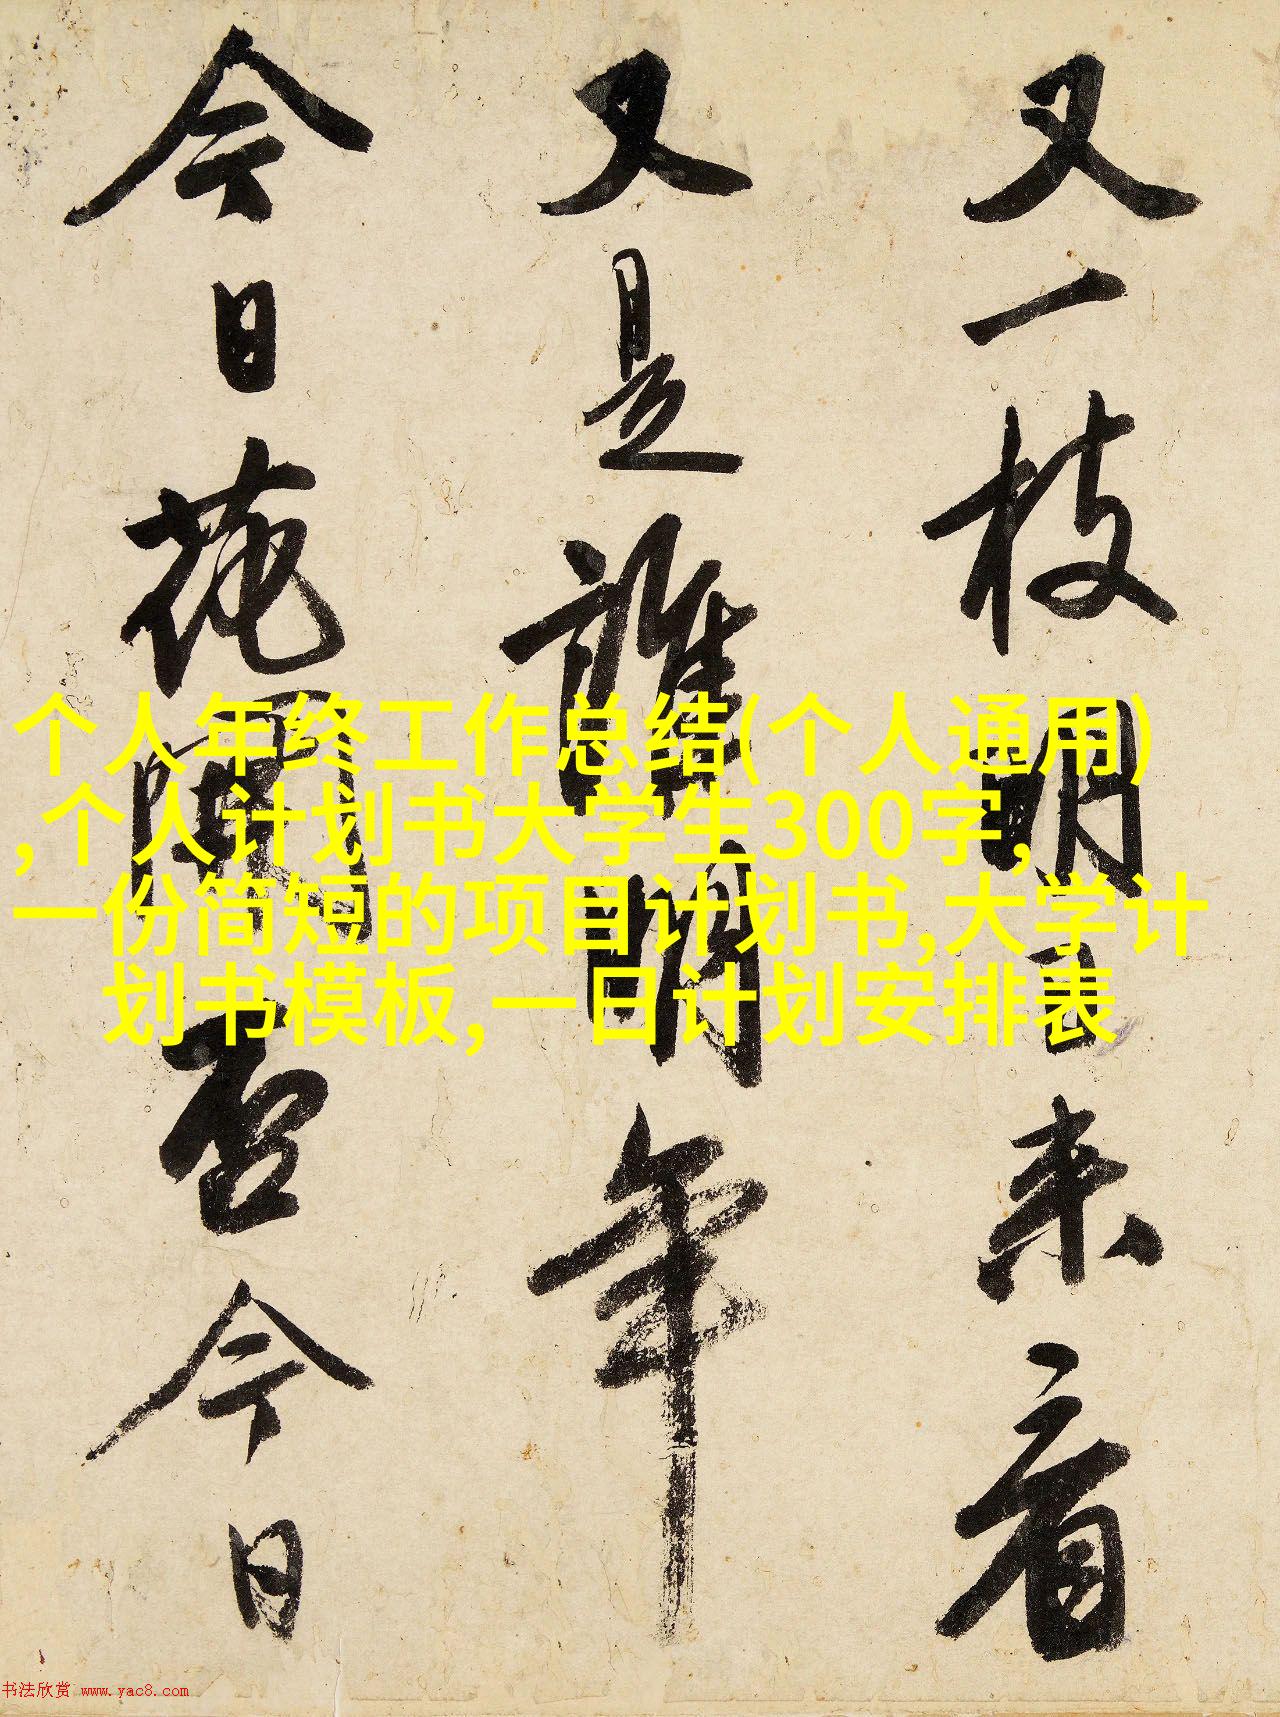 又一枝明日来看
又是誰明年
今日花開否今日
个人年终工作总结(个人通用)
,个人计划书大学生300字,
一份简短的项目计划书,大学计
划书模板,一日计划安排表
书法欣赏 www.yac8.com